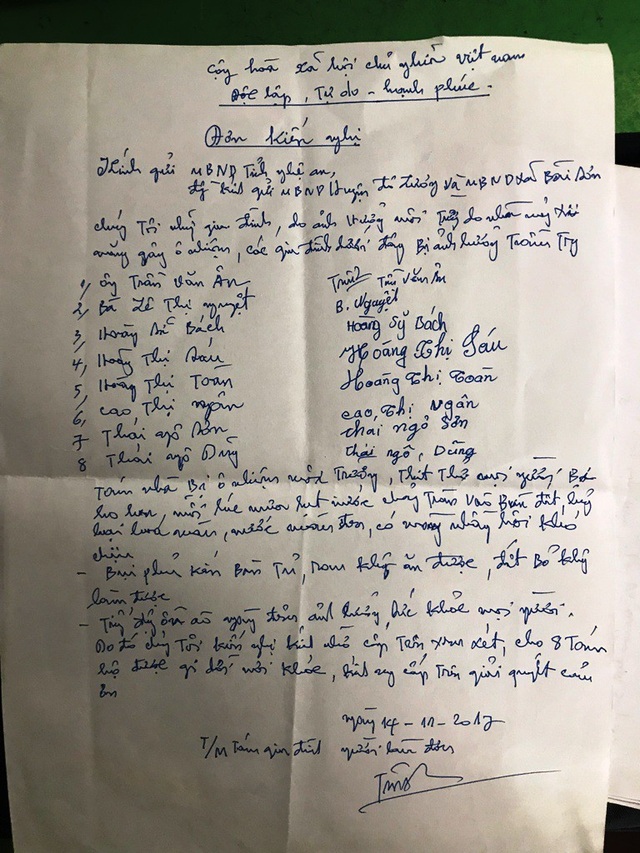 Cộng hoà xã hội chủ nghĩa việt nam
Độc lập, Tự do - hạnh phúc.
Đơn kiến nghị
Kính gửi UBND Tỉnh nghệ an,
Đồng kính gửi UBND Huyện đô lương Và UBND xã Bài Sơn
chúng Tôi những gia đình, do ảnh hưởng môi Trường do nhà máy xi
măng gây ô nhiễm, các gia đình dưới đây Bị ảnh hưởng Trầm Trọng
1, ông Trần Văn Ân Trần Văn Ân
2, Bà Lê Thị nguyệt B. Nguyệt
3, Hoàng Sỹ Bách Hoàng Sỹ Bách
4, Hoàng Thị Sáu Hoàng Thị Sáu
5, Hoàng Thị Toàn Hoàng Thị Toàn
6, cao Thị ngân cao, Thị Ngân
7 Thái ngô Sơn thai ngô Sơn
8 Thái ngô Dũng Thái ngô, Dũng
nhà Bị ô nhiễm môi Trường,
mỗi lúc mưa nước chảy Tràn Vào
hoại hoa màu, nước đen, có mùi khó
chịu
- Bụi phủ kín rau không ăn được, đất Bỏ không
làm được
- ồn ào ngày đêm ảnh hưởng, sức khỏe mọi người.
Do đó chúng Tôi kiến nghị kính nhờ cấp Trên xem xét, cho 8
hộ được di dời mong cấp Trên giải quyết cảm
ơn
ngày 14-11-2017
T/M Tám gia đình người làm đơn